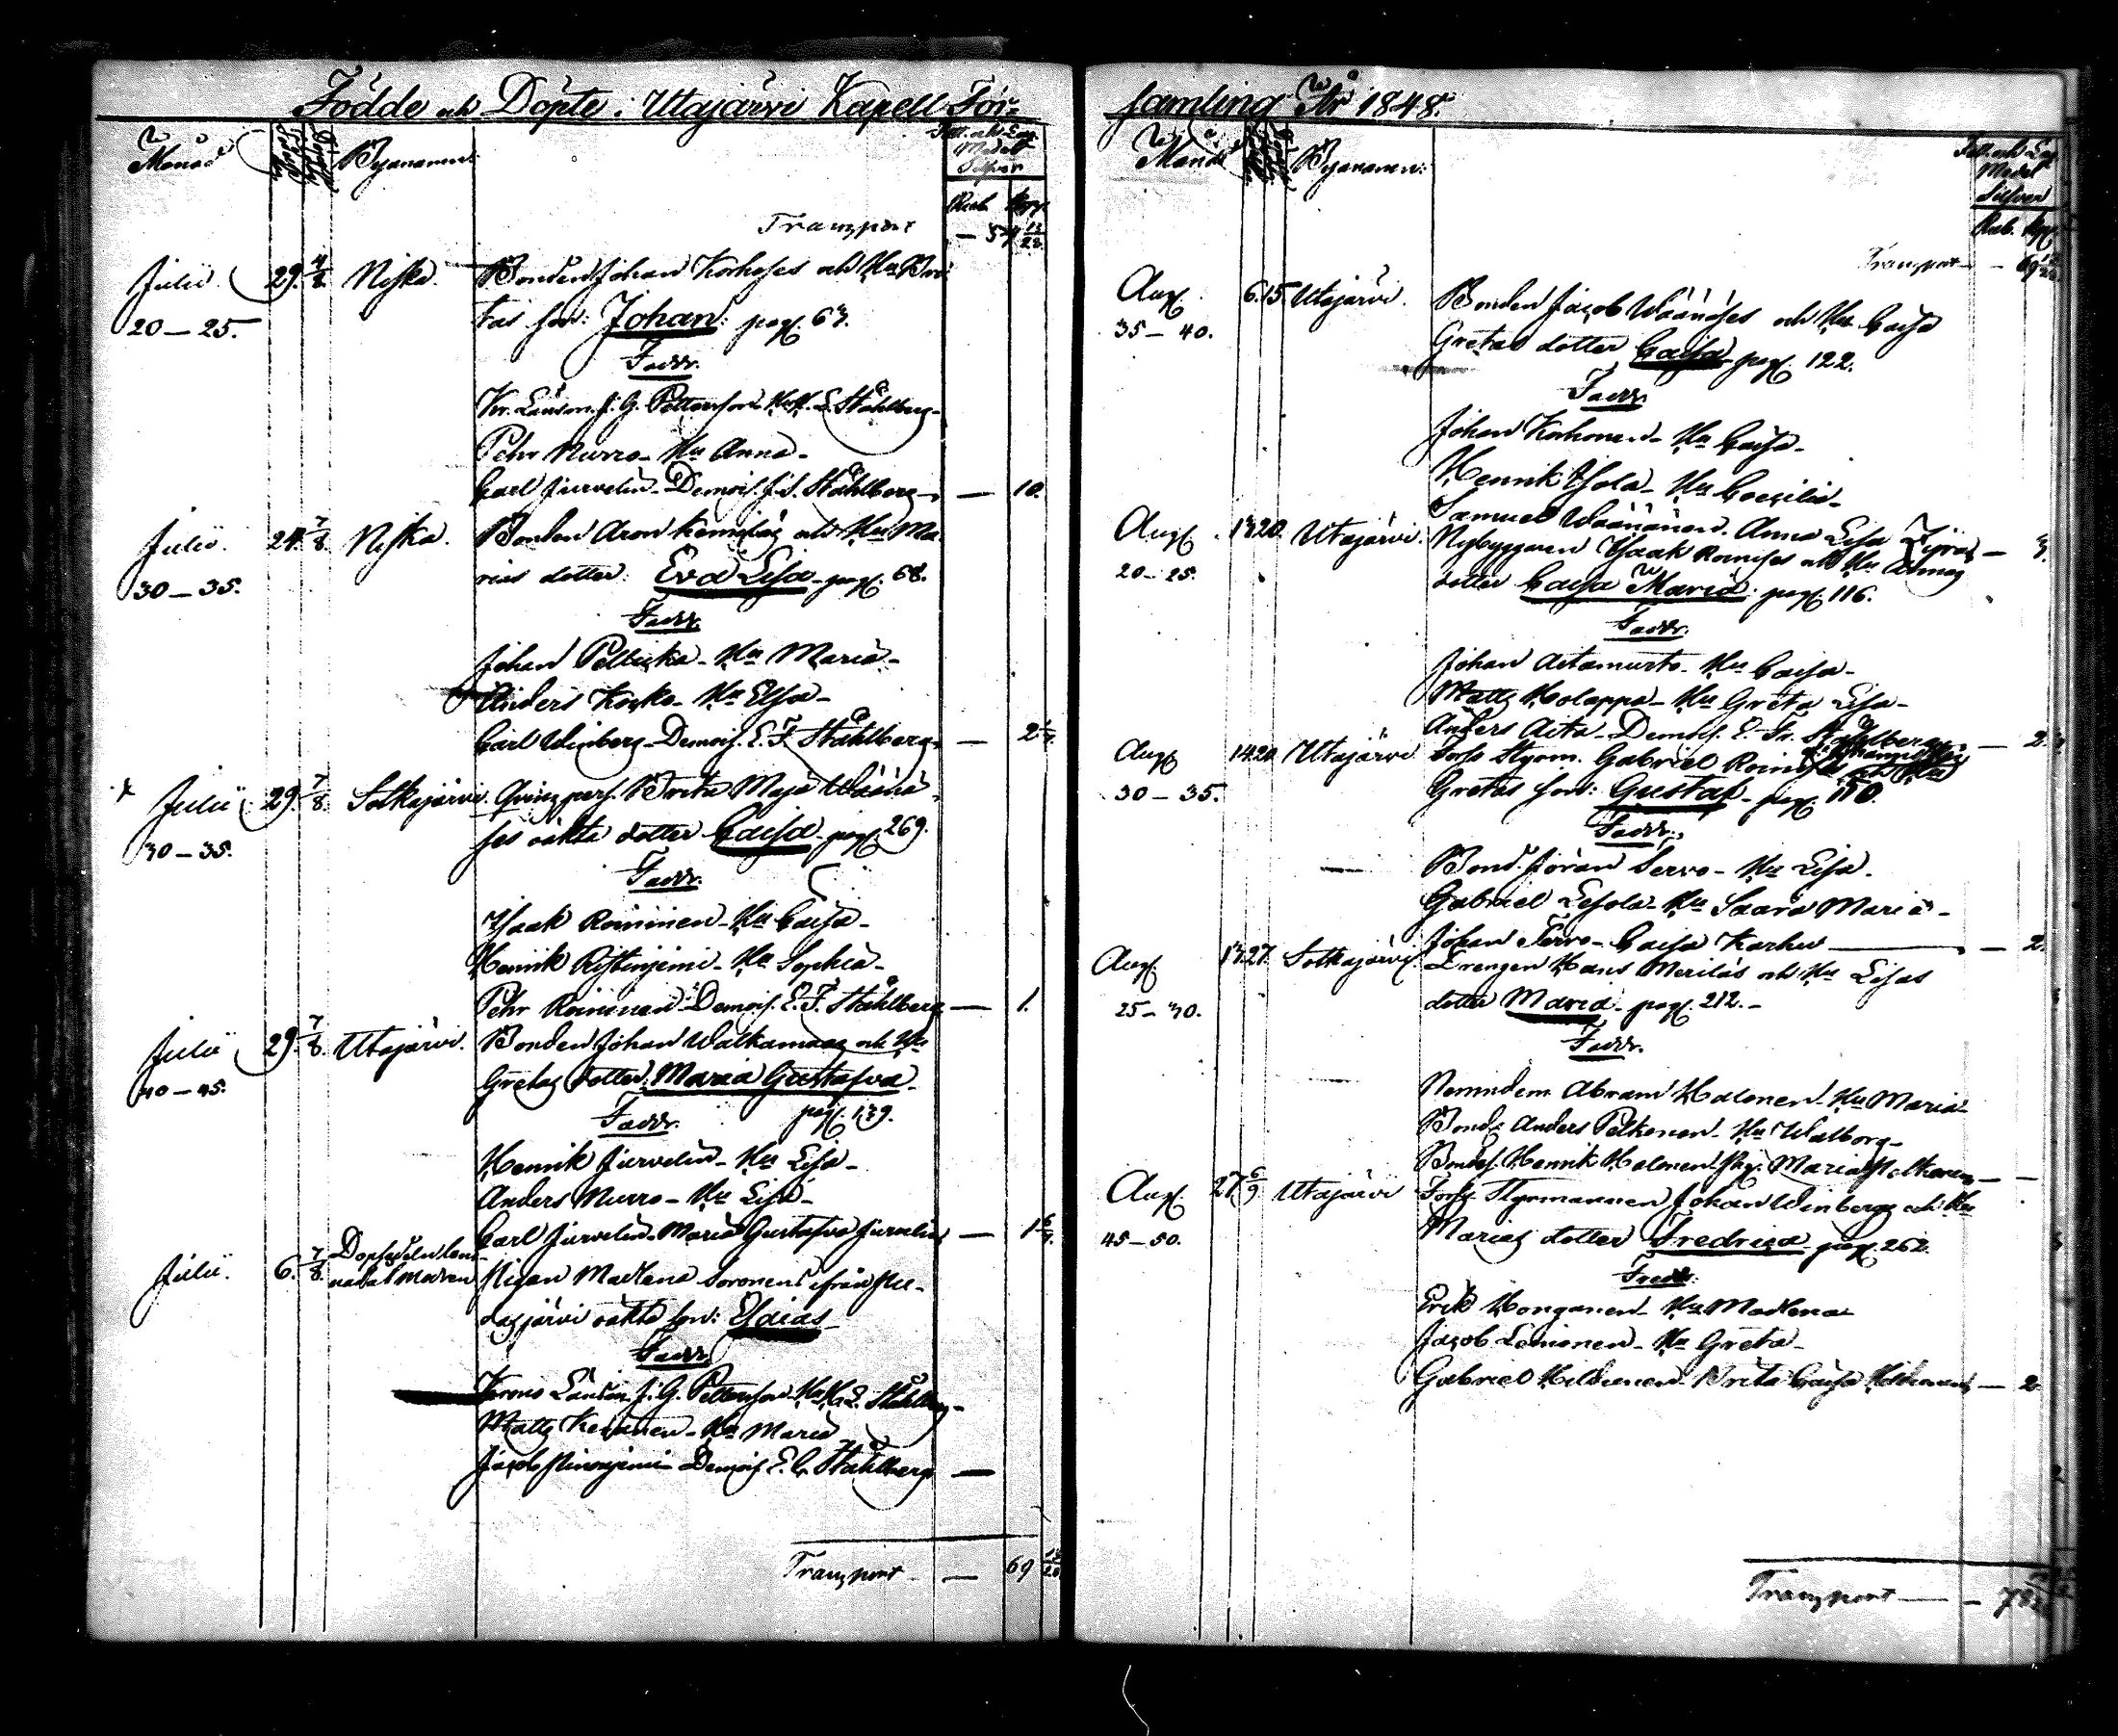 Födde och Döpte i Utajärvi Kapell För-
Månad
Byanamn:
Rub. Kop.
Transport — 57 12/28
Julii 29. 4/8 Niska. Bonden Johan Korhoses och Hu Bri-
20–25. tas son: Johan: pag. 63.
Faddr.
Kr. Länsm. J. G. Petterson Hu L. Ståhlberg-
Pehr Murro- Hu Anna-
Carl Jurvelin- Demois. J. S. Ståhlberg — 10.
Julii. 24. 7/8 Niska. Bonden Aron Kemiläs och Hu Ma-
30–35. rias dotter: Eva Lisa- pag. 68.
Faddr.
Johan Peltuska- Hu Maria-
Anders Kosko- Hu Elsa-
Carl Winberg- Demois. E. F. Ståhlberg — 2
Julii 29. 7/8 Sotkajärvi. Qvinspers. Brita Maja Wäänä-
30–35. ses oäkta dotter Caisa- pag. 269.
Faddr.
Isaak Roininen- Hu Caisa-
Henrik Ristinjemi- Hu Sophia-
Pehr Roininen- Demois. E. F. Ståhlberg — 1.
Julii 29. 7/8. Utajärvi. Bonden Johan Walkamaas och Hu
40–45. Gretas dotter: Maria Gustafva-
Faddr. pag. 139.
Henrik Jurvelin- Hu Lisa-
Anders Murro- Hu Lisa-
Carl Jurvelin- Maria Gustafva Jurvelin — 1
Julii. 6. 7/8 Pigan Madlena Soronens ifrån Pu-
dasjärvi oäkta son: Esaias-
Faddr.
Krono Länsm. J. G. Petterson- Hu L. Ståhlberg-
Matts Keränen- Hu Maria
Jacob Niskajemi- Demois. E. C. Ståhlberg —
Transport — 69
samling År 1848.
Månad
Byanamn:
Silfver
Rub. Kop.
Transport — 69
Aug. 6. 15. Utajärvi. Bonden Jacob Wäänäses och Hu Caisa
35–40. Gretas dotter Caisa- pag. 122.
Faddr.
Johan Korhonen- Hu Caisa-
Henrik Isola- Hu Coecilia-
Samuel Wäänänen. Anna Lisa — 3.
Aug. 13. 20. Utajärvi. Nybyggaren Isaak Roinises och Hu Annas
20–25. dotter Caisa Maria: pag. 116.
Faddr.
Johan Aitamurto- Hu Caisa-
Matts Holappa- Hu Greta Lisa-
Anders Aita- Demois. E. Fr. Ståhlberg — 2.
Aug. 14. 20 Utajärvi Fors Styrm. Gabriel Roinises och Hu
30–35. Gretas son: Gustaf- pag. 150.
Faddr.
Bond. Jöran Servo- Hu Lisa.
Gabriel Lesola- Hu Saara Maria-
Johan Servo- Caisa Karhu — 2.
Aug. 13. 27. Sotkajärvi. Drengen Hans Meriläs och Hu Lisas
25–30. dotter Maria- pag. 212.-
Faddr.
Nemndem. Abram Halonen- Hu Maria-
Bond. Anders Pelkonen- Hu Walborg-
Bondes. Henrik Halonen- Pig. Maria Pelkonen —
Aug. 27. 6/9 Utajärvi Fors Styrmannen Johan Winbergs och Hu
45–50. Marias dotter Fredrica- pag. 262.
Faddr.
Erik Honganen- Hu Madlena
Jacob Leinonen- Hu Greta-
Gabriel Hiltunen- Brita Caisa Hiltunen — 2
Transport — 78